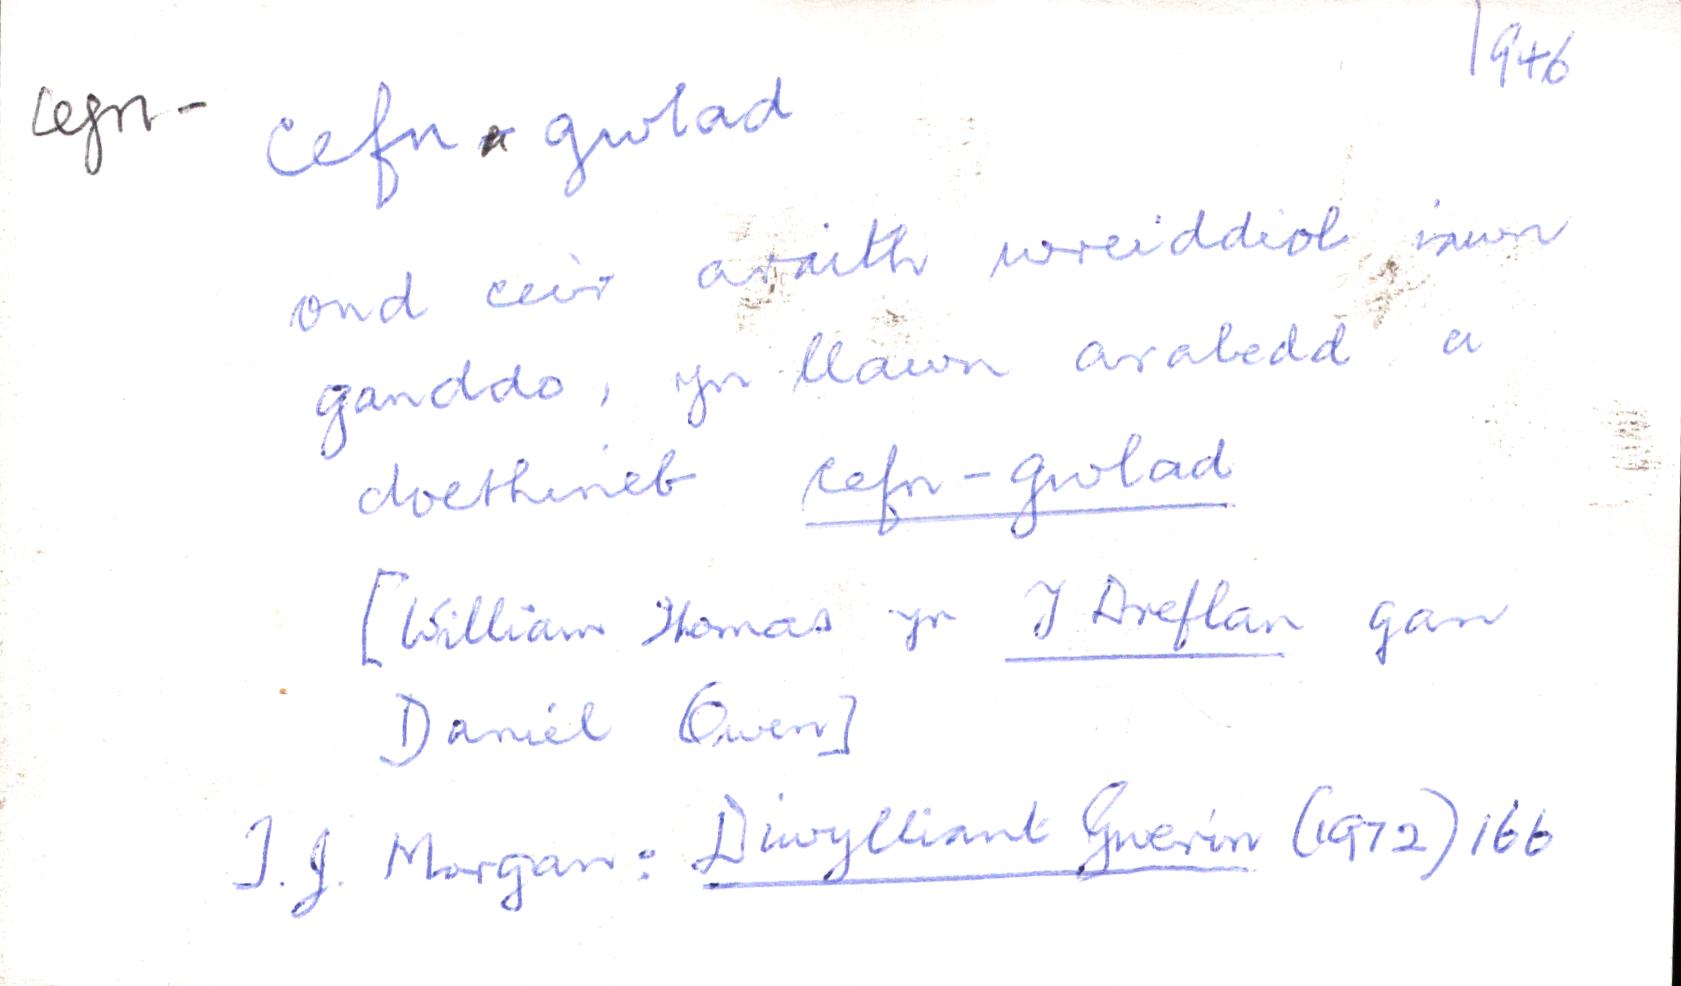 1946
cefn- cefn gwlad
ond ceir araith wreiddiol iawn
ganddo, yn llawn arabedd a
doethineb cefn-gwlad
[William Thomas yn Y Dreflan gan
Daniel Owen]
T.J. Morgan: Diwylliant Gwerin (1972) 166